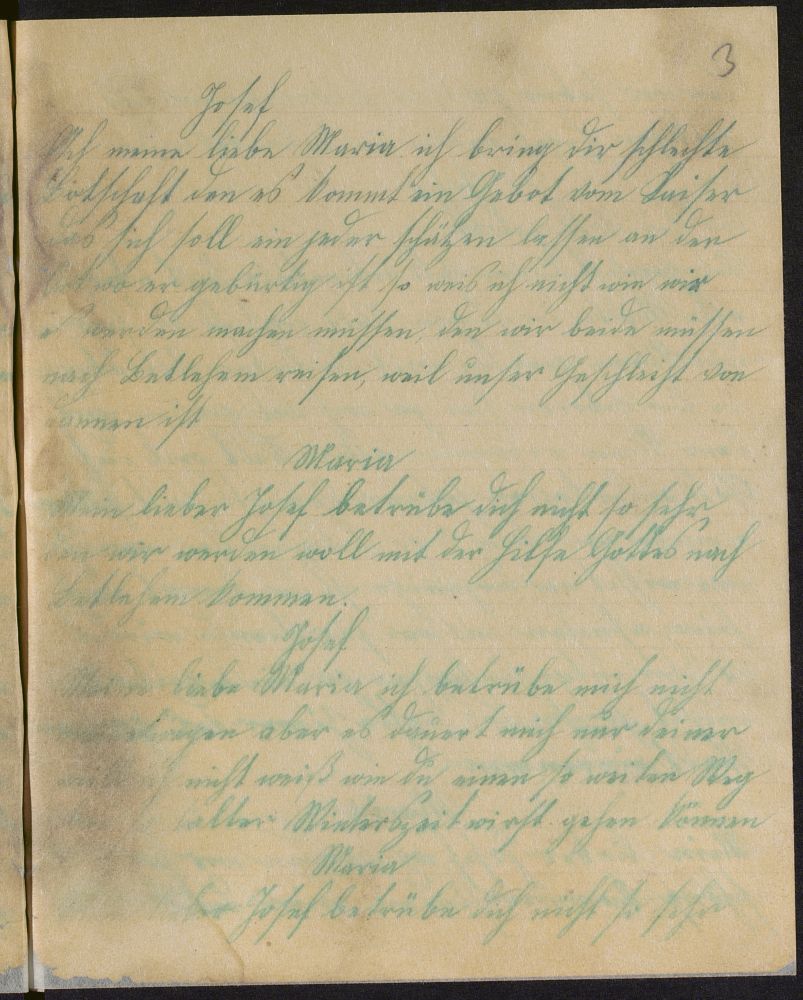 3
Josef
Ach meine liebe Maria ich bring dir schlechte
Botschaft den es kommt ein Gebot vom Kaiser
das sich soll ein jeder schätzen lassen an den
Ort wo er gebürtig ist so weis ich nicht wie wir
es werden machen müssen, den wir beide müssen
nach Betlehem reisen, weil unser Geschlecht von
dannen ist
Maria
Mein lieber Josef betrübe dich nicht so sehr
den wir werden woll mit der Hilfe Gottes nach
Betlehem kommen.
Josef
Meine liebe Maria ich betrübe mich nicht
aber es dauert mich nur deiner
nicht weiß wie du einen so weiten Weg
kalter Winterszeit wirst gehen können
Maria
Josef betrübe dich nicht so sehr